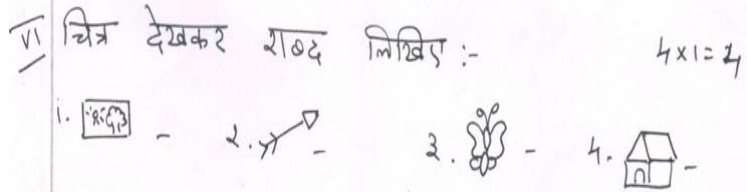 VI चित्र देखकर शब्द लिखिए :- 4 x 1 = 4
1. - 2. - 3. - 4. -